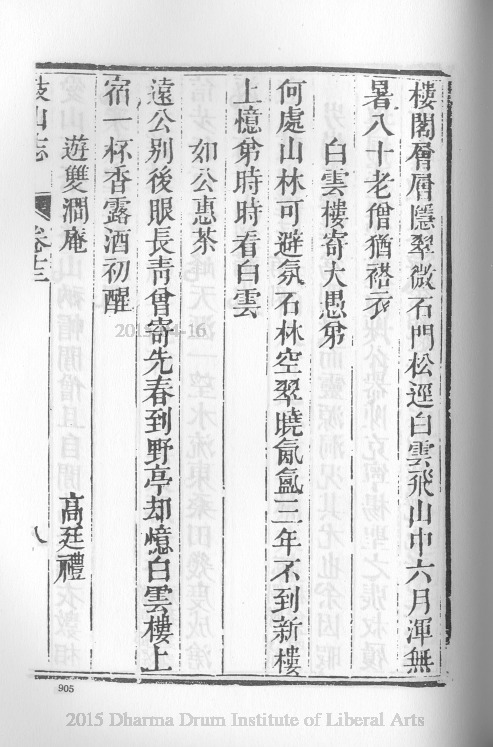 樓閣層層隱翠微石門松逕白雲飛山中六月渾無
暑八十老僧猶褡衣
白雲樓寄大愚弟
何處山林可避氛石林空翠曉氤氳三年不到新樓
上憶弟時時看白雲
如公惠茶
遠公别後眼長青曾寄先春到野亭却憶白雲樓上
宿一杯香露酒初醒
遊雙澗庵 高廷禮
鼓山志 卷十三 八
905
2015 Dharma Drum Institute of Liberal Arts